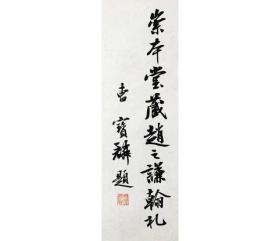 崇本堂藏趙之謙翰札
曹寶麟題